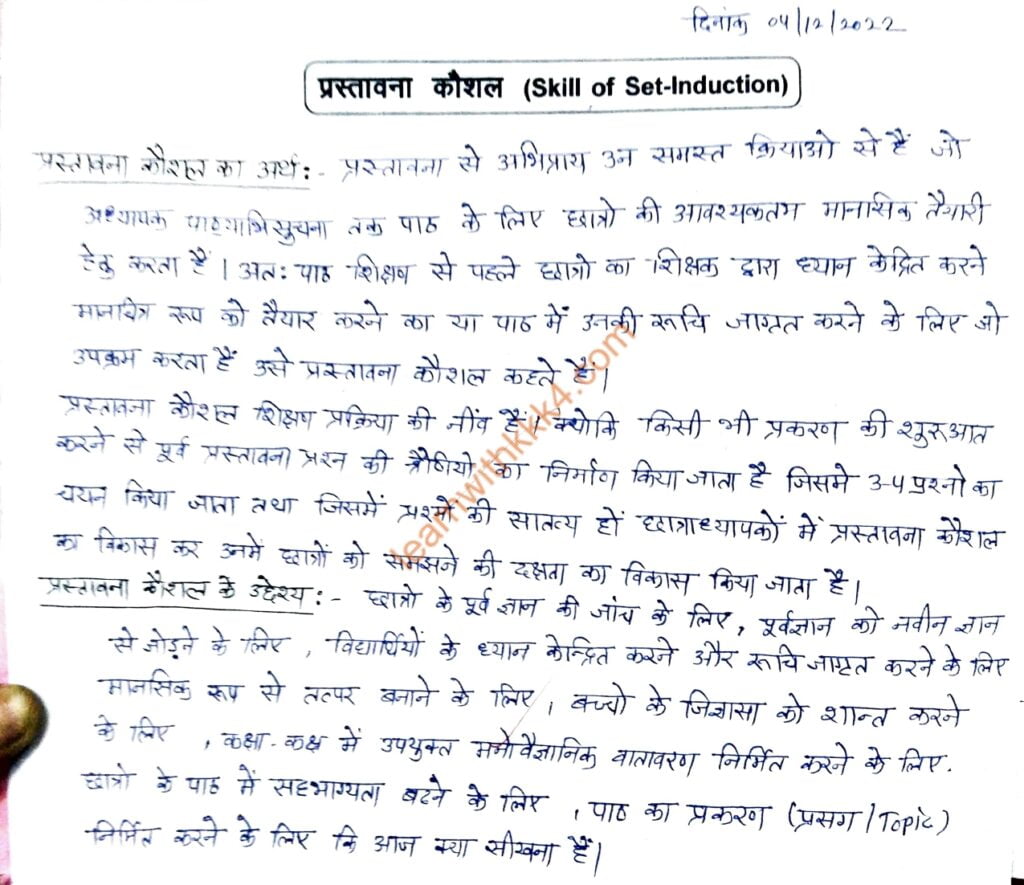 दिनांक 04/12/2022
प्रस्तावना कौशल (Skill of Set-Induction)
प्रस्तावना कौशल का अर्थ:- प्रस्तावना से अभिप्राय उन समस्त क्रियाओ से हैं जो
अध्यापक पाठ्याभिसुचना तक पाठ के लिए छात्रो की आवश्यकतम मानसिक तैयारी
हेतु करता हैं। अत: पाठ शिक्षण से पहले छात्रो का शिक्षक द्वारा ध्यान केद्रित करने
मानचित्र रूप को तैयार करने का या पाठ में उनकी रूचि जाग्रत करने के लिए जो
उपक्रम करता हैं उसे प्रस्तावना कौशल कहते हैं।
प्रस्तावना कौशल शिक्षण प्रक्रिया की नींव हैं। क्योकि किसी भी प्रकरण की शुरूआत
करने से पूर्व प्रस्तावना प्रश्न की श्रेणियो का निर्माण किया जाता है जिसमे 3-4 प्रश्नो का
चयन किया जाता तथा जिसमें प्रश्नों की सातत्य हों छात्राध्यापकों में प्रस्तावना कौशल
का विकास कर उनमें छात्रों को समझने की दक्षता का विकास किया जाता है।
प्रस्तावना कौशल के उद्देश्य:- छात्रो के पूर्व ज्ञान की जांच के लिए, पूर्वज्ञान को नवीन ज्ञान
से जोड़ने के लिए, विद्यार्थियों के ध्यान केन्द्रित करने और रूचि जाग्रत करने के लिए
मानसिक रूप से तत्पर बनाने के लिए, बच्चो के जिज्ञासा को शान्त करने
के लिए, कक्षा-कक्ष में उपयुक्त मनोवैज्ञानिक वातावरण निर्मित करने के लिए.
छात्रो के पाठ में सहभाग्यता बटने के लिए, पाठ का प्रकरण (प्रसग/Topic)
निर्मित करने के लिए कि आज क्या सीखना हैं।
learnwithkkk4.com